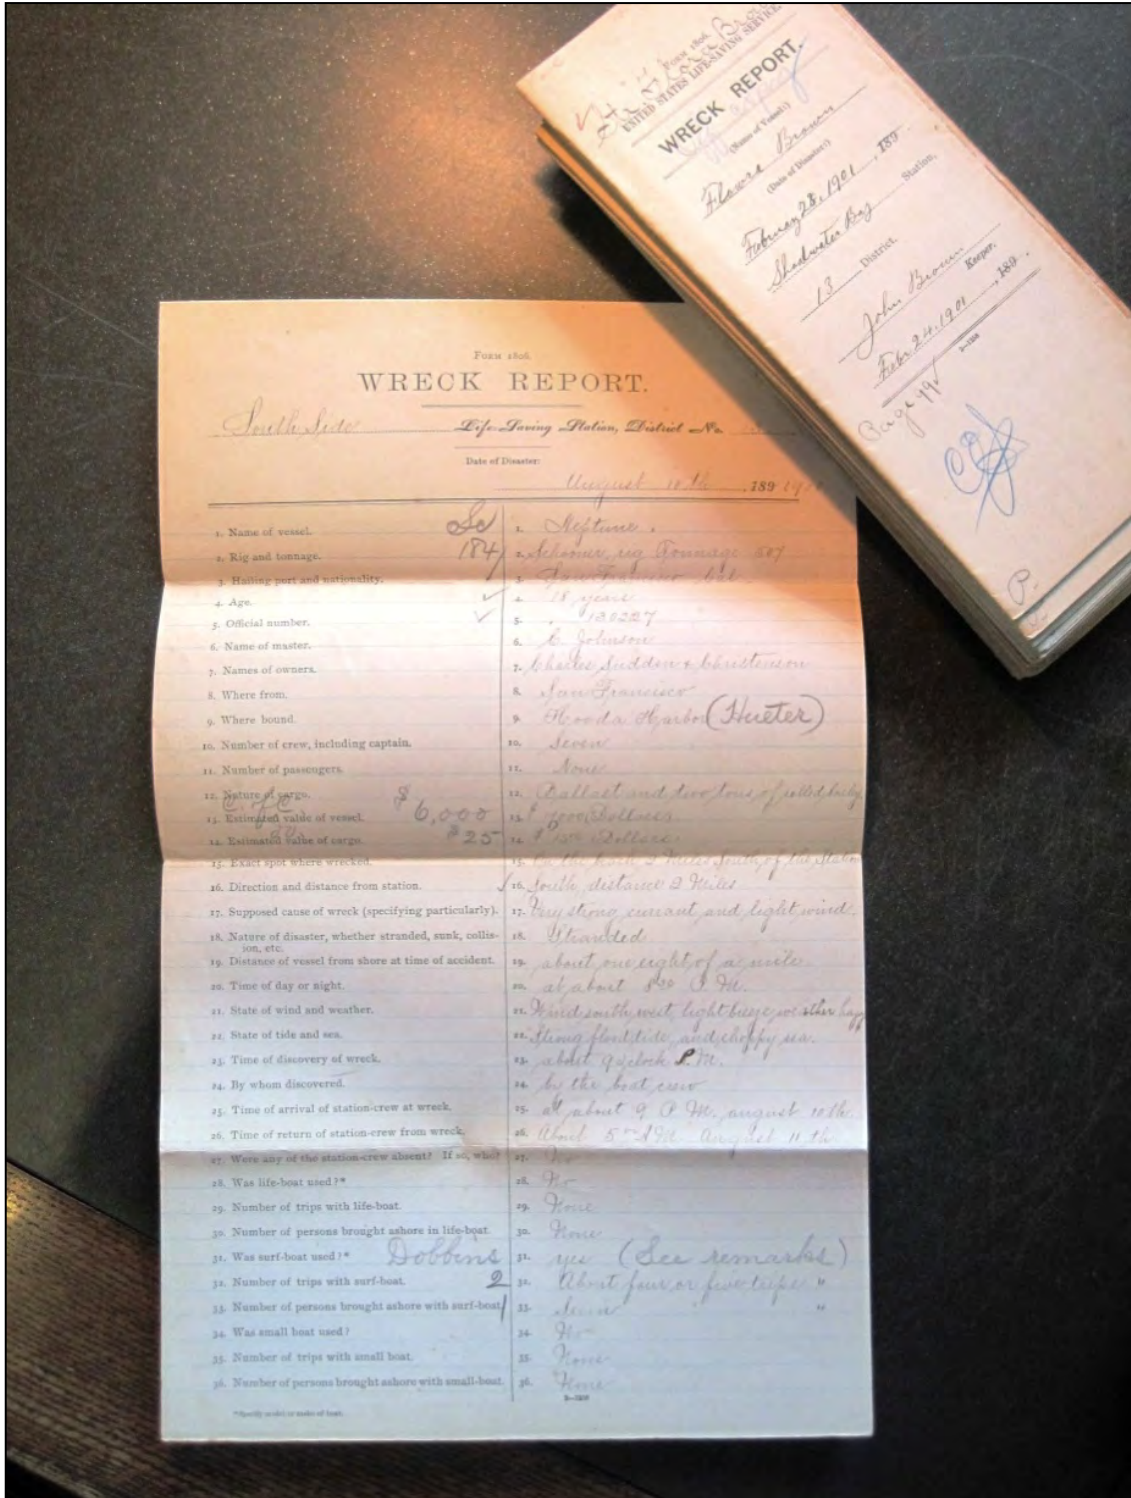 FORM 1806.
UNITED STATES LIFE-SAVING SERVICE.
WRECK REPORT.
(Name of Vessel:)
Flower Brown
(Date of Disaster:)
February 28, 1901, 189 .
Shoalwater Bay Station.
13 District.
John Brown Keeper.
Febr 24, 1901, 189 .
Page 99
P.
FORM 1806.
WRECK REPORT.
South Side Life-Saving Station, District No.
Date of Disaster:
August 10th, 189
1. Name of vessel. Sc 1. Neptune.
2. Rig and tonnage. 184 2. Schooner, rig Tonnage
3. Hailing port and nationality. 3. San Francisco Cal
4. Age. 4. 18 years
5. Official number. 5. 130227
6. Name of master. 6. C. Johnson
7. Names of owners. 7. Charles Suddon & Christenson
8. Where from. 8. San Francisco
9. Where bound. 9. Hooda Harbor (Hueter)
10. Number of crew, including captain. 10. Seven
11. Number of passengers. 11. None
12. Nature of cargo. 12. Ballast and two tons of rolled barley
13. Estimated value of vessel. $6,000 13. $ Dollars
14. Estimated value of cargo. $25 14. $ Dollars.
15. Exact spot where wrecked. 15. On the 2 Miles South, of the Station
16. Direction and distance from station. 16. South, distance 2 Miles
17. Supposed cause of wreck (specifying particularly). 17. Very strong currant, and light wind.
18. Nature of disaster, whether stranded, sunk, collis- 18. Stranded
ion, etc.
19. Distance of vessel from shore at time of accident. 19. about one eight of a mile
20. Time of day or night. 20. at about 8 30 P.M.
21. State of wind and weather. 21. Wind south west, light breeze, weather hazy
22. State of tide and sea. 22. Strong flood tide, and choppy sea.
23. Time of discovery of wreck. 23. about 9 oclock P.M.
24. By whom discovered. 24. by the boat crew
25. Time of arrival of station-crew at wreck. 25. at about 9 P.M. august 10th
26. Time of return of station-crew from wreck. 26. About 5 00 A.M. August 11th
27. Were any of the station-crew absent? If so, who? 27. No
28. Was life-boat used?* 28. No
29. Number of trips with life-boat. 29. None
30. Number of persons brought ashore in life-boat. 30. None
31. Was surf-boat used?* Dobbins 31. yes (See remarks)
32. Number of trips with surf-boat. 2 32. About four or five trips "
33. Number of persons brought ashore with surf-boat 1 33. Seven "
34. Was small boat used? 34. No
35. Number of trips with small boat. 35. None
36. Number of persons brought ashore with small-boat. 36. None
*Specify model or make of boat.